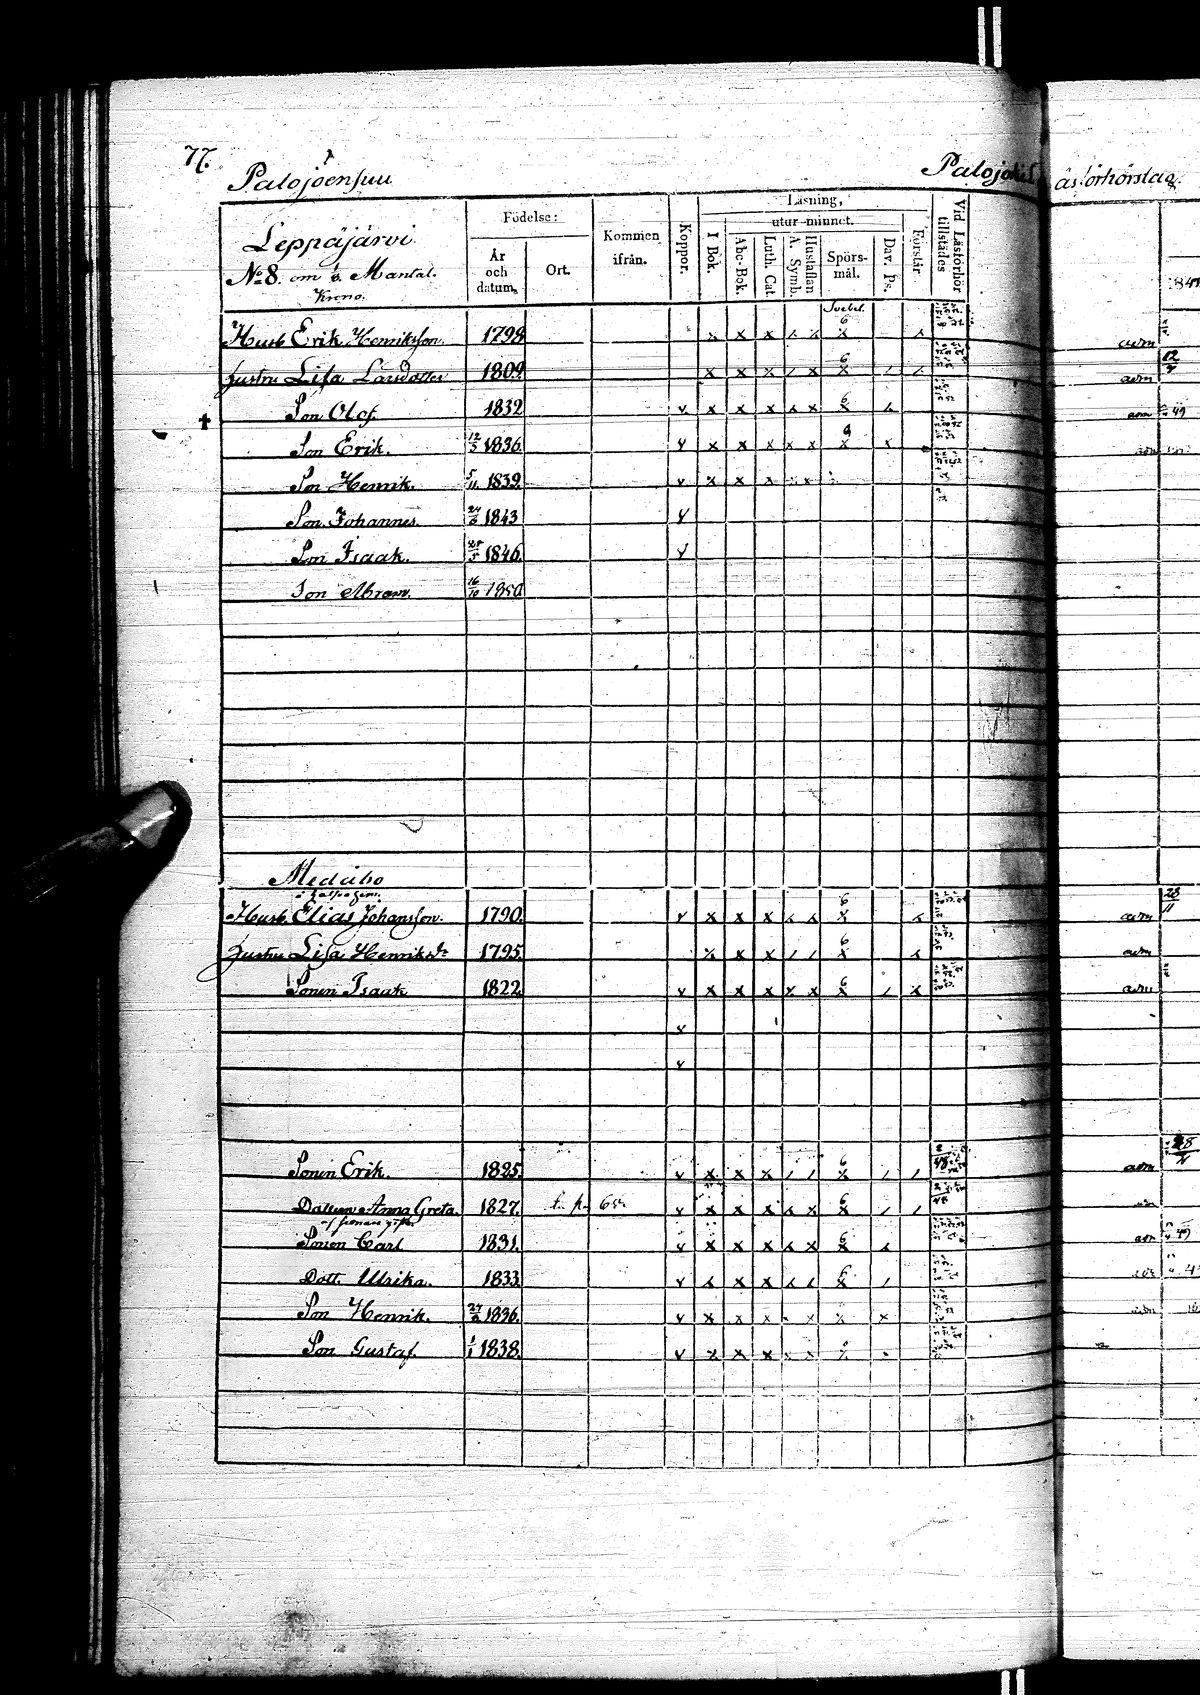 77.
Palojoensuu
Palojoki
Läsförhörslag
Leppäjärvi
No 8. om Mantal.
Krono.
Födelse:
År och datum.
Ort.
Kommen ifrån.
Koppor.
Läsning,
utur minnet.
I Bok.
Abc-Bok.
Luth. Cat.
A. Symb.
Hustaflan
Spörs-mål.
Dav. Ps.
Förstår
Vid Läsförhör tillstädes
Svebel.
Husb. Erik Henriksson. 1798 x x x x x 6 x x
hustru Lisa Larsdotter 1809. x x x / x 6 x / / adm 12/7
Son Olof. 1832 v x x x x x 6 x x adm 49
Son Erik. 12/3 1836. v x x x x x x x
Son Henrik. 5/11 1839. v x x x x x
Son Johannes. 24/6 1843 v
Son Isaak. 25/5 1846. v
Son Abram. 16/10 1850
Medaho
Husb. Elias Johansson. 1790. v x x x x x 6 x x adm 25/11
hustru Lisa Henriksdr 1795. x x x / / 6 x x adm
Sonen Isaak 1822. v x x x x x 6 x / x adm
v
v
Sonen Erik. 1825. v x x x / / 6 x / / adm 28
Dottren Anna Greta. 1827. v x x x x x 6 x / /
Sonen Carl 1831. v x x x x x 6 x x 49
Dott. Ulrika. 1833. v x x x x x 6 x /
Son Henrik. 1836. v x x x x x x
Son Gustaf 1/1 1838. v x x x x x x